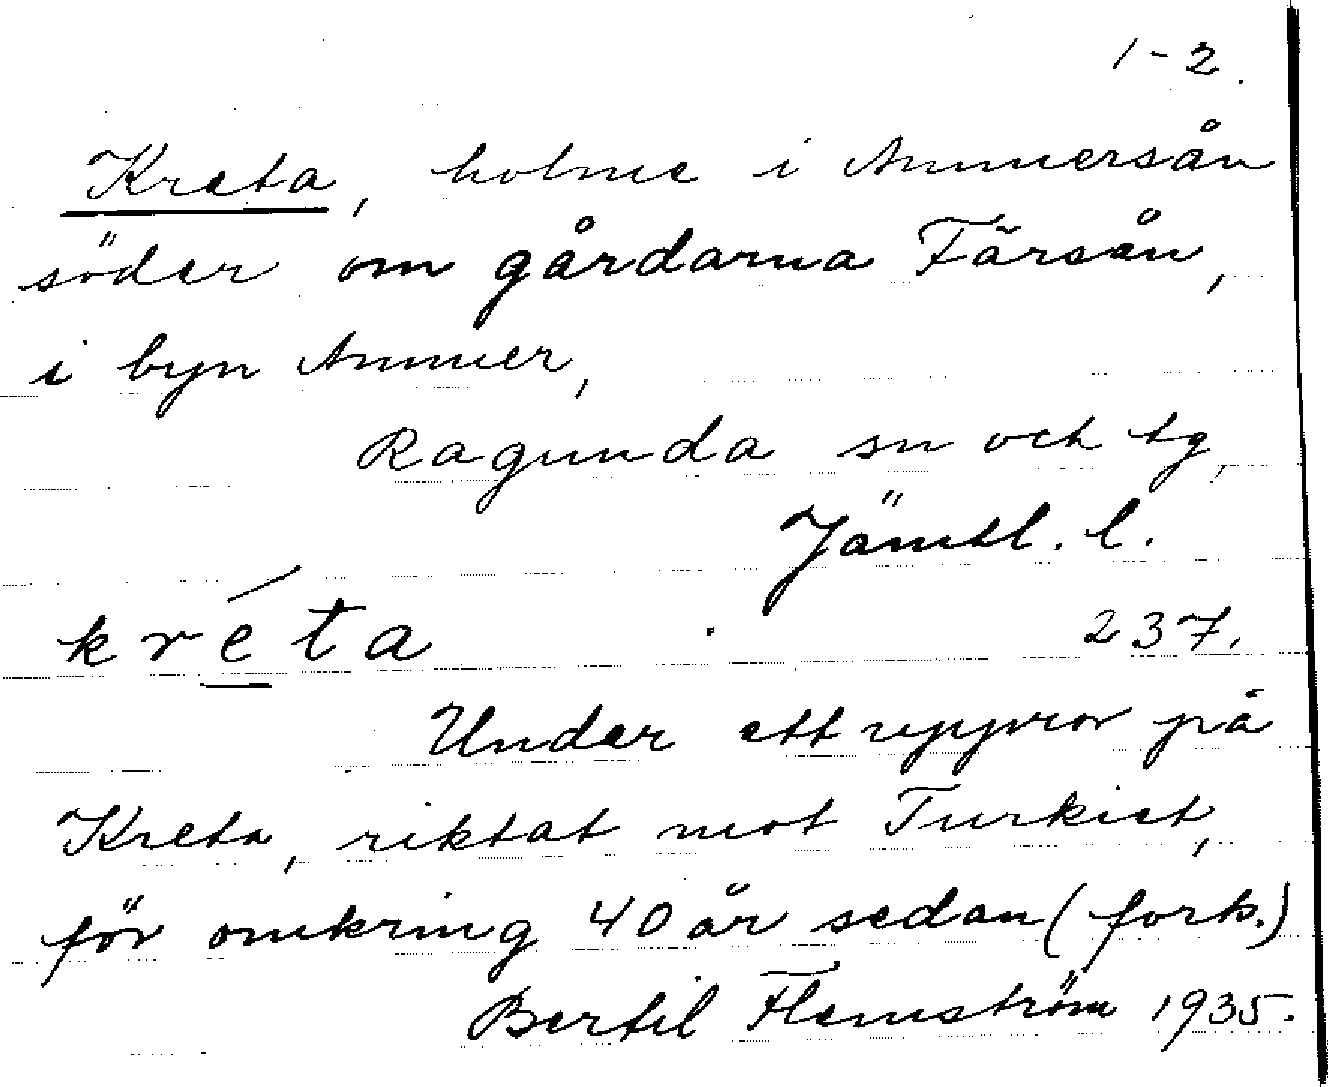 1-2.
Kreta, holme i Ammersån
söder om gårdarna Färsån,
i byn Ammer,
Ragunda sn och tg,
Jämtl. l.
kréta 237.
Under ett uppror på
Kreta, riktat mot Turkiet,
för omkring 40 år sedan (forts.)
Bertil Flemström 1935.